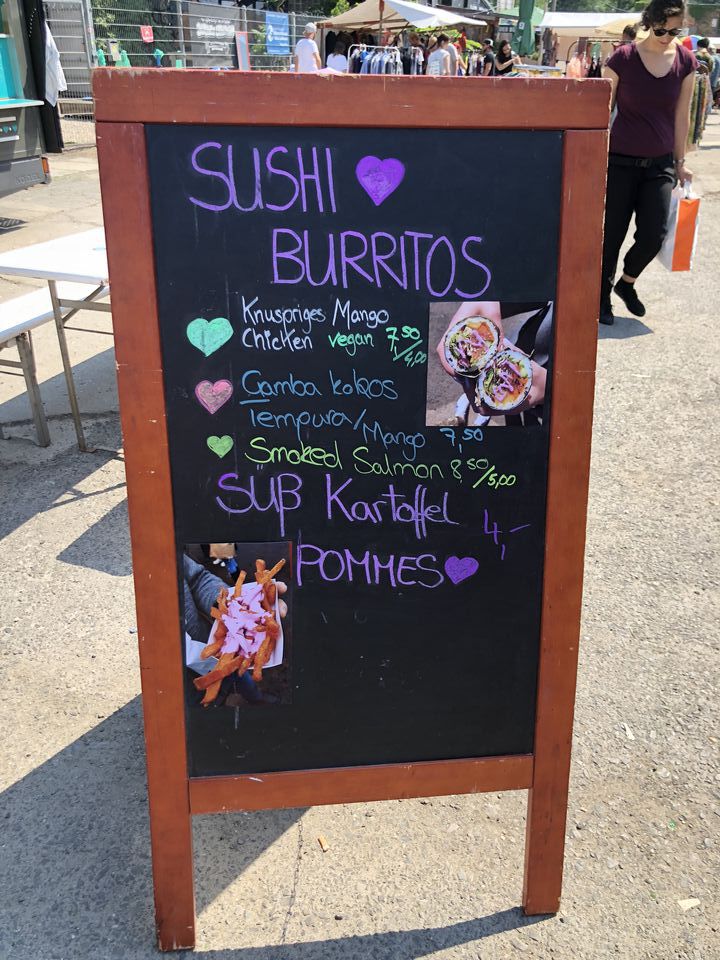 SUSHI
BURRITOS
Knuspriges Mango
Chicken vegan 7,50/4,00
Gamba kokos
Tempura/Mango 7,50
Smoked Salmon 8,50/5,00
SÜß Kartoffel
4,-
POMMES